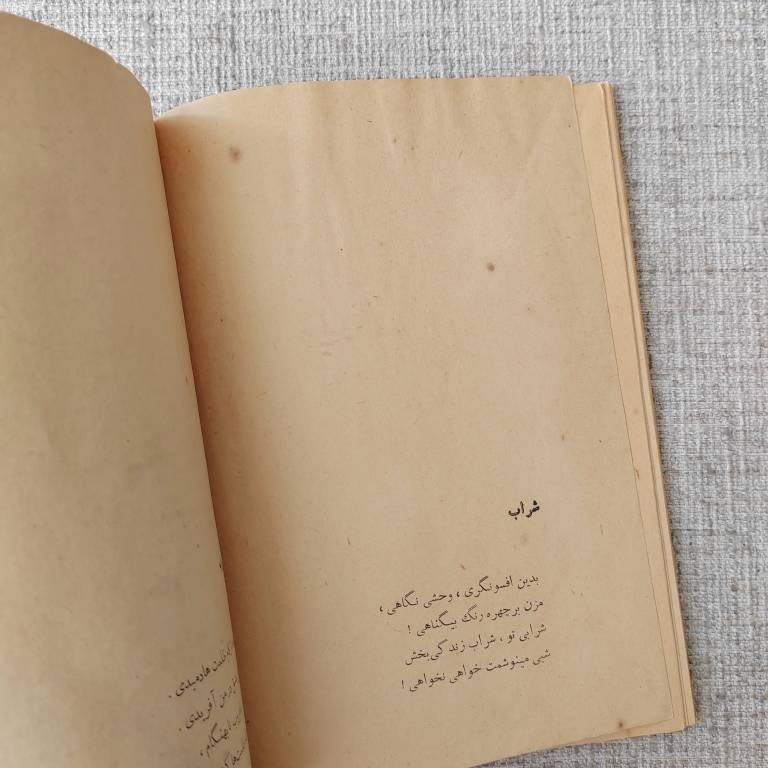 شراب
بدین افسونگری ، وحشی نگاهی ،
مزن برچهره رنگ بیگناهی !
شرابی تو ، شراب زندگی‌بخش
شبی مینوشمت خواهی نخواهی !
آفریدی .